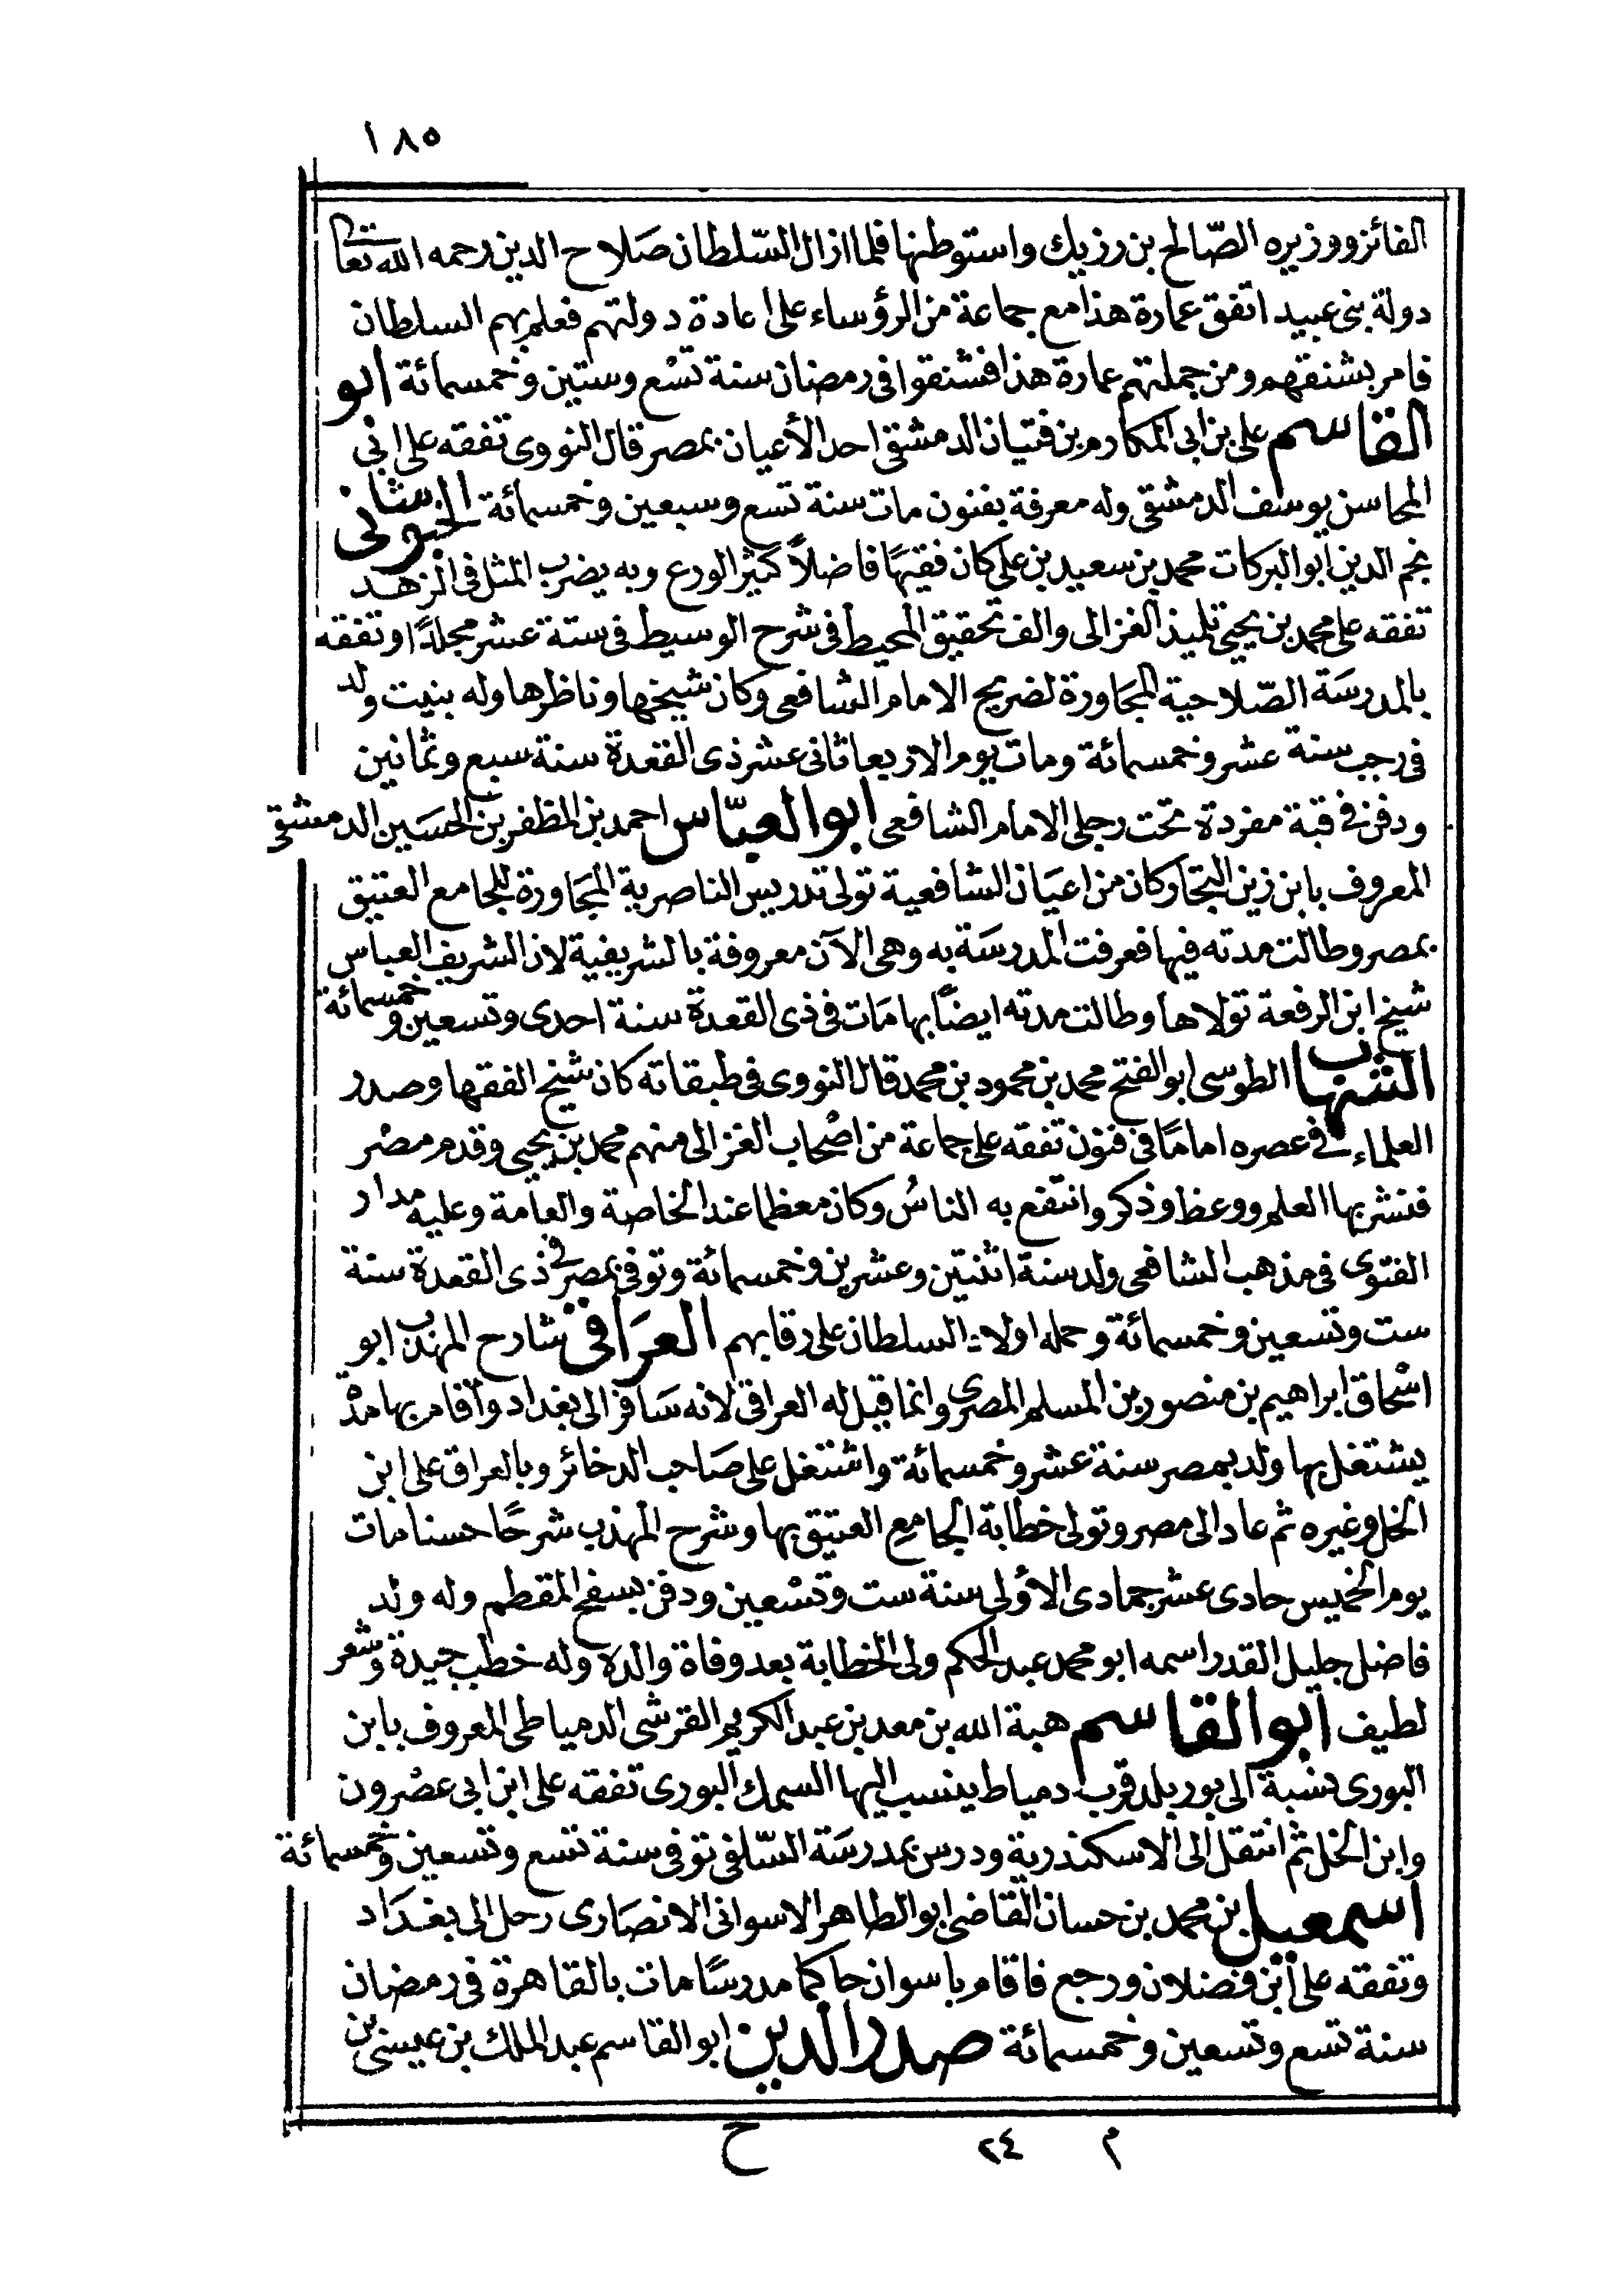 ١٨٥
الفائز ووزيره الصّالح بن رزيك واستوطنها فلما ازال السّلطان صَلاح الدين رحمه الله تعالى
دولة بنى عبيد اتفق عمارة هذا مع جماعة من الرؤساء على اعادة دولتهم فعلم بهم السلطان
فامر بشنقهم ومن جملتهم عمارة هذا فشنقوا فى رمضان سنة تسْع وستين وخمسمائة ابو
القاسم على بن ابى المكارم بن فتيان الدمشقى احد الأعيان بمصر قال النووى تفقه على ابى
المحاسن يوسف الدمشقى وله معرفة بفنون مات سنة تسع وسبعين وخمسمائة الخبوشانى
نجم الدين ابو البركات محمد بن سعيد بن على كان فقيهًا فاضلاً كثير الورع وبه يضرب المثل فى الزهد
تفقه على محمد بن يحيى تلميذ الغزالى والف تحقيق المحيط فى شرح الوسيط فى ستة عشر مجلدًا وتفقه
بالمدرسَة الصّلاحية المجَاورة لضريح الامام الشافعى وكان شيخها وناظرها وله بنيت ولد
فى رجب سنة عشر وخمسمائة ومات يوم الاربعا ثانى عشر ذى القعدة سنة سبع وثمانين
ودفن فى قبة مفردة تحت رجلى الامام الشافعى ابو العبّاس احمد بن المظفر بن الحسَين الدمشقى
المعروف بابن زين التجار كان من اعيَان الشافعية تولى تدريس الناصرية المجَاورة للجامع العتيق
بمصر وطالت مدته فيها فعرفت المدرسَة به وهى الآن معروفة بالشريفية لان الشريف العباس
شيخ ابن الرفعة تولاها وطالت مدته ايضًا بها مَات فى ذى القعدة سنة احدى وتسعين وخمسمائة
الشهاب الطوسى ابو الفتح محمد بن محمود بن محمد قال النووى فى طبقاته كان شيخ الفقها وصدر
العلماء فى عصره امامًا فى فنون تفقه على جماعة من اصْحاب الغزالى منهم محمد بن يحيى وقدم مصْر
فنشر بها العلم ووعظ وذكر وانتفع به الناسُ وكان معظما عند الخاصة والعامة وعليه مدار
الفتوى فى مذهب الشافعى ولد سنة اثنتين وعشرين وخمسمائة وتوفى بمصر فى ذى القعدة سنة
ست وتسعين وخمسمائة وحمله اولاد السلطان على رقابهم العرَاقى شارح المهذب ابو
اسْحاق ابراهيم بن منصور بن المسلم المصرى وانما قيل له العراقى لانه سَافر الى بغداد وأقام بها مدْ
يشتغل بها ولد بمصر سنة عشر وخمسمائة واشتغل على صَاحب الدخائر وبالعراق على ابن
الخل وغيره ثم عاد الى مصر وتولى خطابة الجامع العتيق بها وشرح المهذب شرحًا حسنا مات
يوم الخميس حادى عشر جمادى الاولى سنة ست وتسْعين ودفن بسفح المقطم وله ولد
فاضل جليل القدر اسمه ابو محمد عبد الحكم ولى الخطابة بعد وفاة والده وله خطب جيدة وشعر
لطيف ابو القاسم هبة الله بن معد بن عبد الكريم القرشى الدمياطى المعروف بابن
البورى نسْبة الى بور بلد قرب دمياط ينسب اليها السمك البورى تفقه على ابن ابى عصْرون
وابن الخل ثم انتقل الى الاسكندرية ودرس بمدرسَة السّلفى توفى سنة تسع وتسعين وخمسمائة
اسمعيل بن محمد بن حسان القاضى ابو الطاهر الاسوانى الانصَارى رحل الى بغدَاد
وتفقه على ابن فضلان ورجع فاقام باسوان حاكما مدرسًا مات بالقاهرة فى رمضان
سنة تسع وتسعين وخمسمائة صدر الدين ابو القاسم عبد الملك بن عيسى بن
م ٢٤ ح